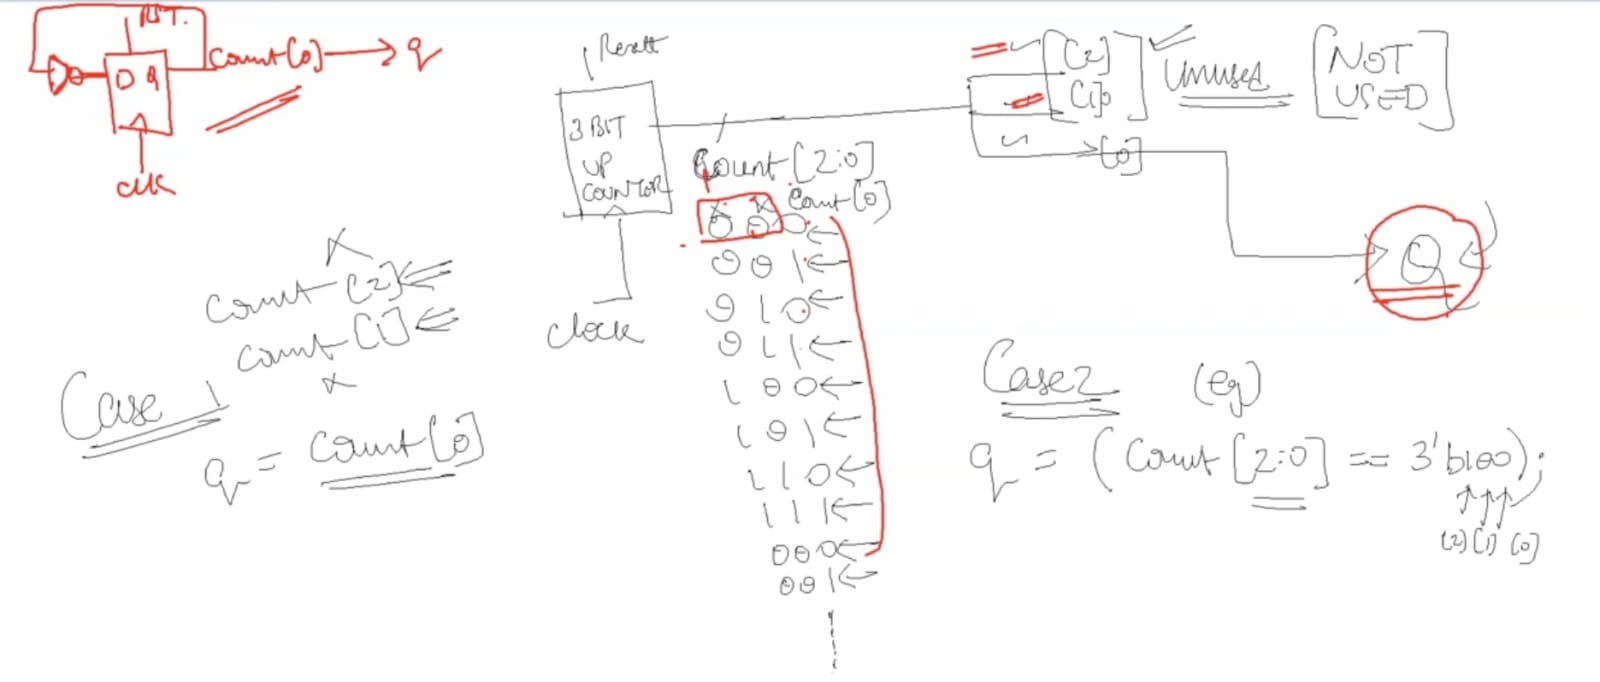 RST.
D Q
Count[0] → q
clk
Reset
3 BIT
UP
COUNTOR
Clock
Count[2:0]
Count[0]
0 0 0
0 0 1
0 1 0
0 1 1
1 0 0
1 0 1
1 1 0
1 1 1
0 0 0
0 0 1
[2]
[1]
[0]
Unused
NOT
USED
Q
Count[2]
Count[1]
Case 1
q = Count[0]
Case 2 (eg)
q = (Count[2:0] == 3'b100);
[2] [1] [0]